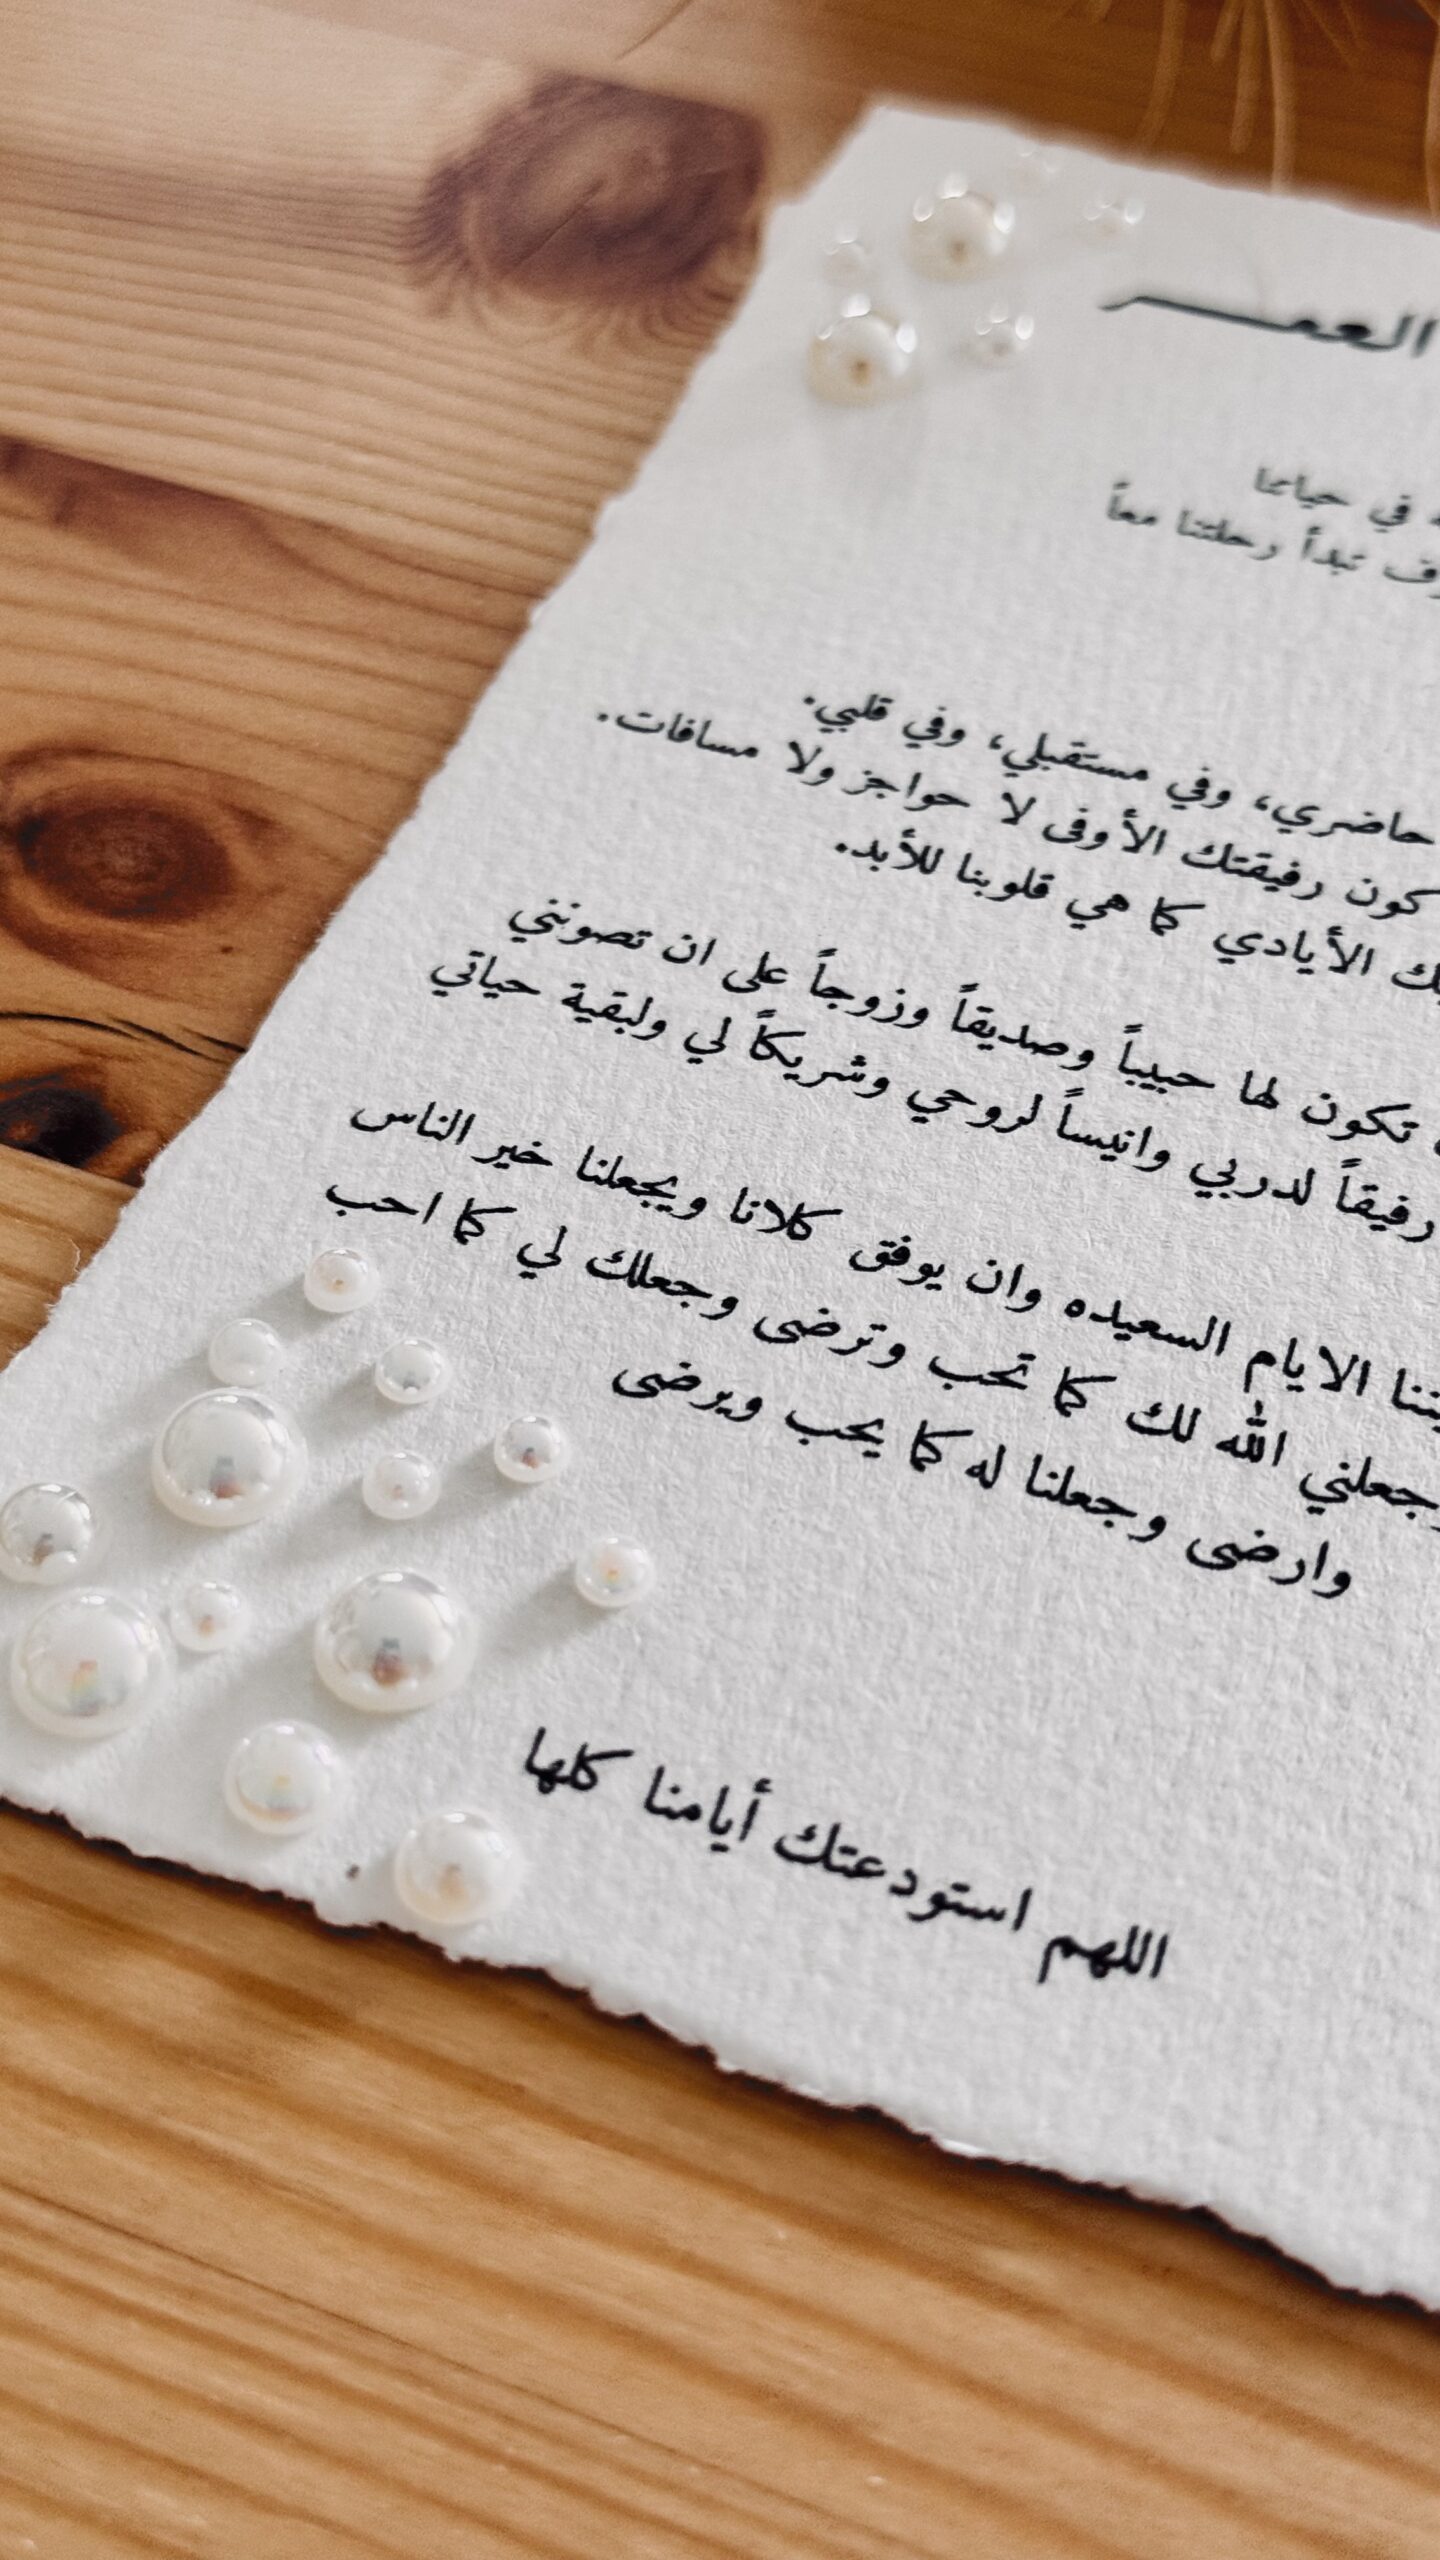 العمر
في حياتنا
نبدأ رحلتنا معاً
حاضري، وفي مستقبلي، وفي قلبي.
رفيقتك الأوفى لا حواجز ولا مسافات.
الأيادي كما هي قلوبنا للأبد.
تكون لها حبيباً وصديقاً وزوجاً على ان تصونني
رفيقاً لدربي وانيساً لروحي وشريكاً لي ولبقية حياتي
الايام السعيده وان يوفق كلانا ويجعلنا خير الناس
وجعلني الله لك كما تحب وترضى وجعلك لي كما احب
وارضى وجعلنا له كما يحب ويرضى
اللهم استودعتك أيامنا كلها